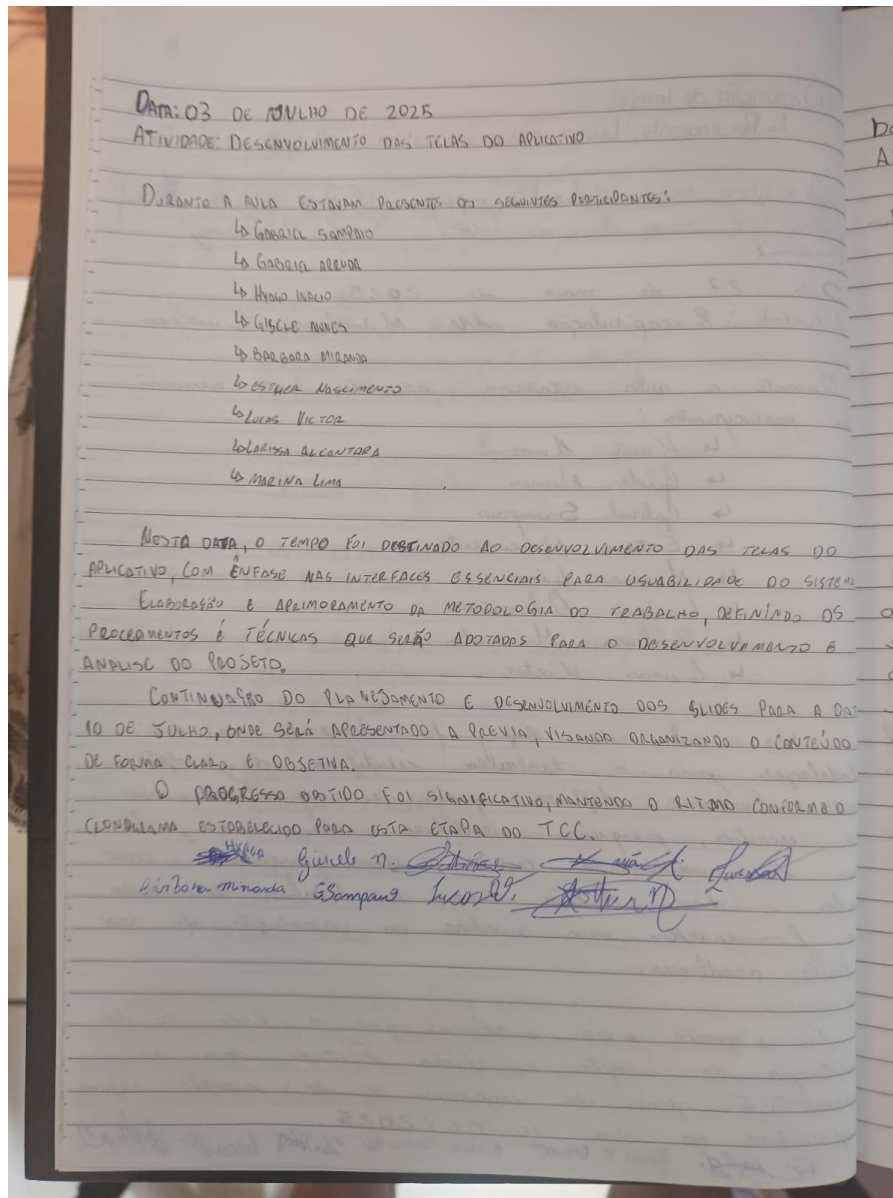 DATA: 03 DE JULHO DE 2025
ATIVIDADE: DESENVOLVIMENTO DAS TELAS DO APLICATIVO
DURANTE A AULA ESTAVAM PRESENTES OS SEGUINTES PARTICIPANTES:
↳ GABRIEL SAMPAIO
↳ GABRIEL ARRUDA
↳ HYAGO INACIO
↳ GISELE NUNES
↳ BARBARA MIRANDA
↳ ESTHER NASCIMENTO
↳ LUCAS VICTOR
↳ LARISSA ALCANTARA
↳ MARINA LIMA
NESTA DATA, O TEMPO FOI DESTINADO AO DESENVOLVIMENTO DAS TELAS DO
APLICATIVO, COM ÊNFASE NAS INTERFACES ESSENCIAIS PARA USUABILIDADE DO SISTEMA
ELABORAÇÃO E APRIMORAMENTO DA METODOLOGIA DO TRABALHO, DEFININDO OS
PROCEDAMENTOS É TÉCNICAS QUE SERÃO ADOTADOS PARA O DESENVOLVEMENTO E
ANALISE DO PROJETO.
CONTINUAÇÃO DO PLANEJAMENTO E DESENVOLUIMENTO DOS SLIDES PARA A DAT
10 DE JULHO, ONDE SERÁ APRESENTADO A PREVIA, VISANDO ORGANIZANDO O CONTEÚDO
DE FORMA CLARA E OBJETIVA.
O PROGRESSO OBTIDO FOI SIGNIFICATIVO, MANTENDO O RITMO CONFORME O
CRONOGRAMA ESTABELECIDO PARA ESTA ETAPA DO TCC.
HYAGO Gisele N.
Bárbara Miranda GSampaio Lucas V. Esther N